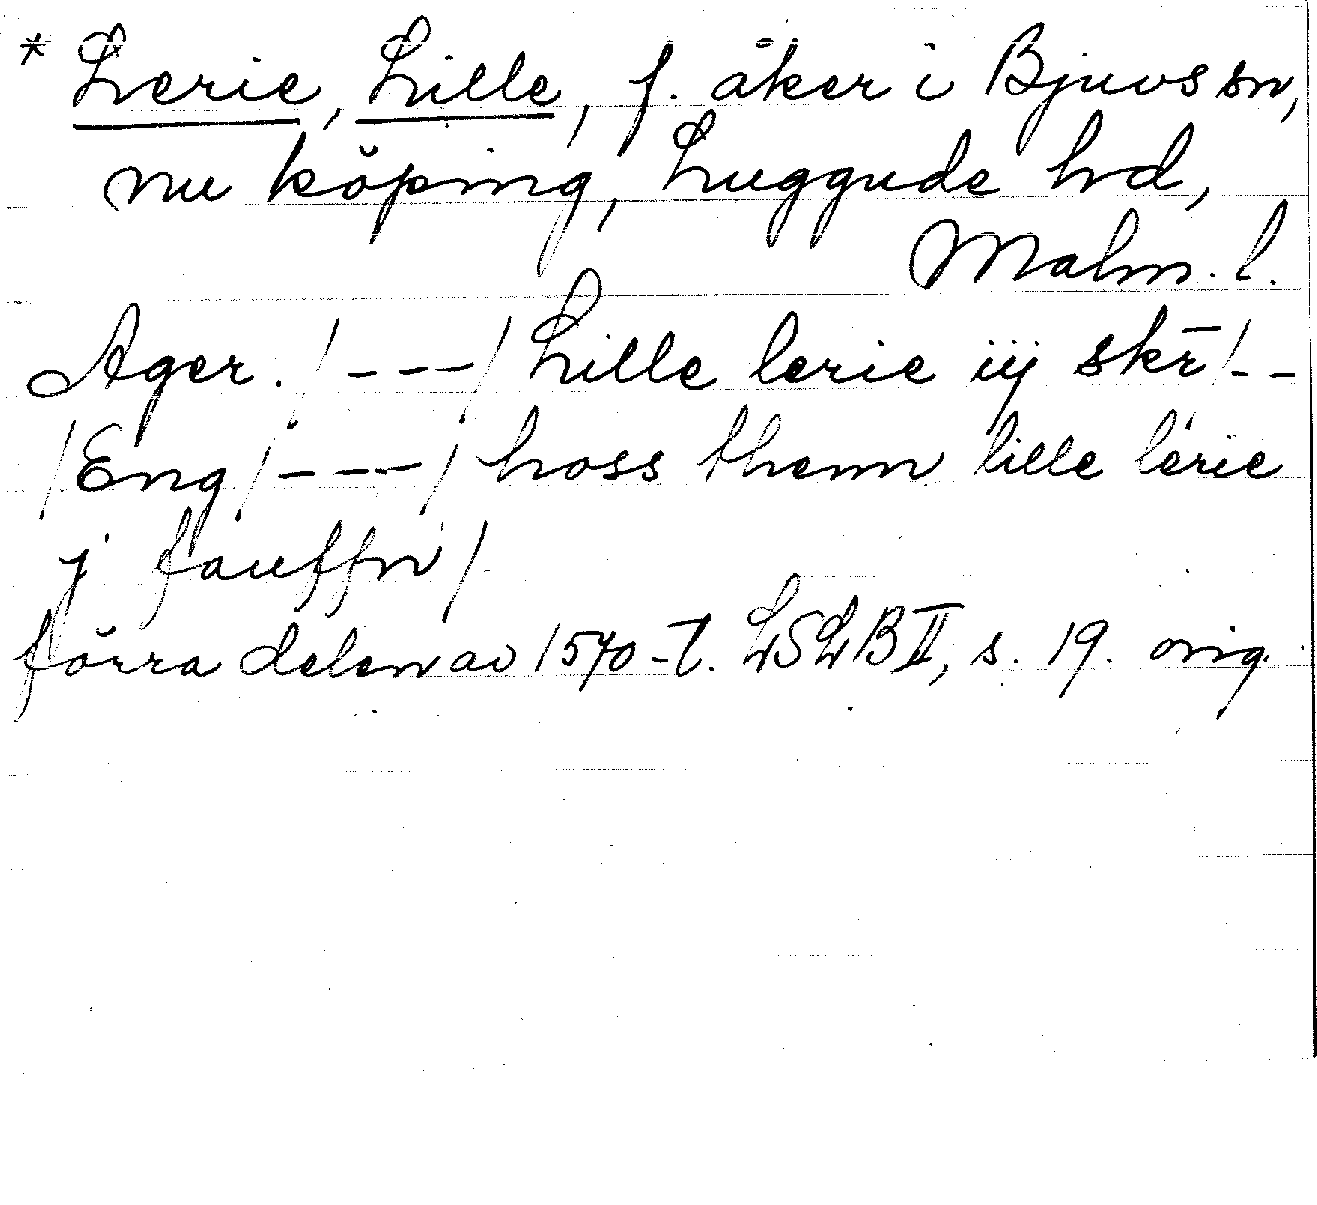 * Lerie, Lille, f. åker i Bjuvs sn,
nu köping, Luggude hd,
Malm. l.
Ager. / --- / Lille lerie iij skr̄ / --
/ Eng / --- / hoss themn lille lerie
j fauffn /
förra delen av 1570-t. LSLB II, s. 19. orig.